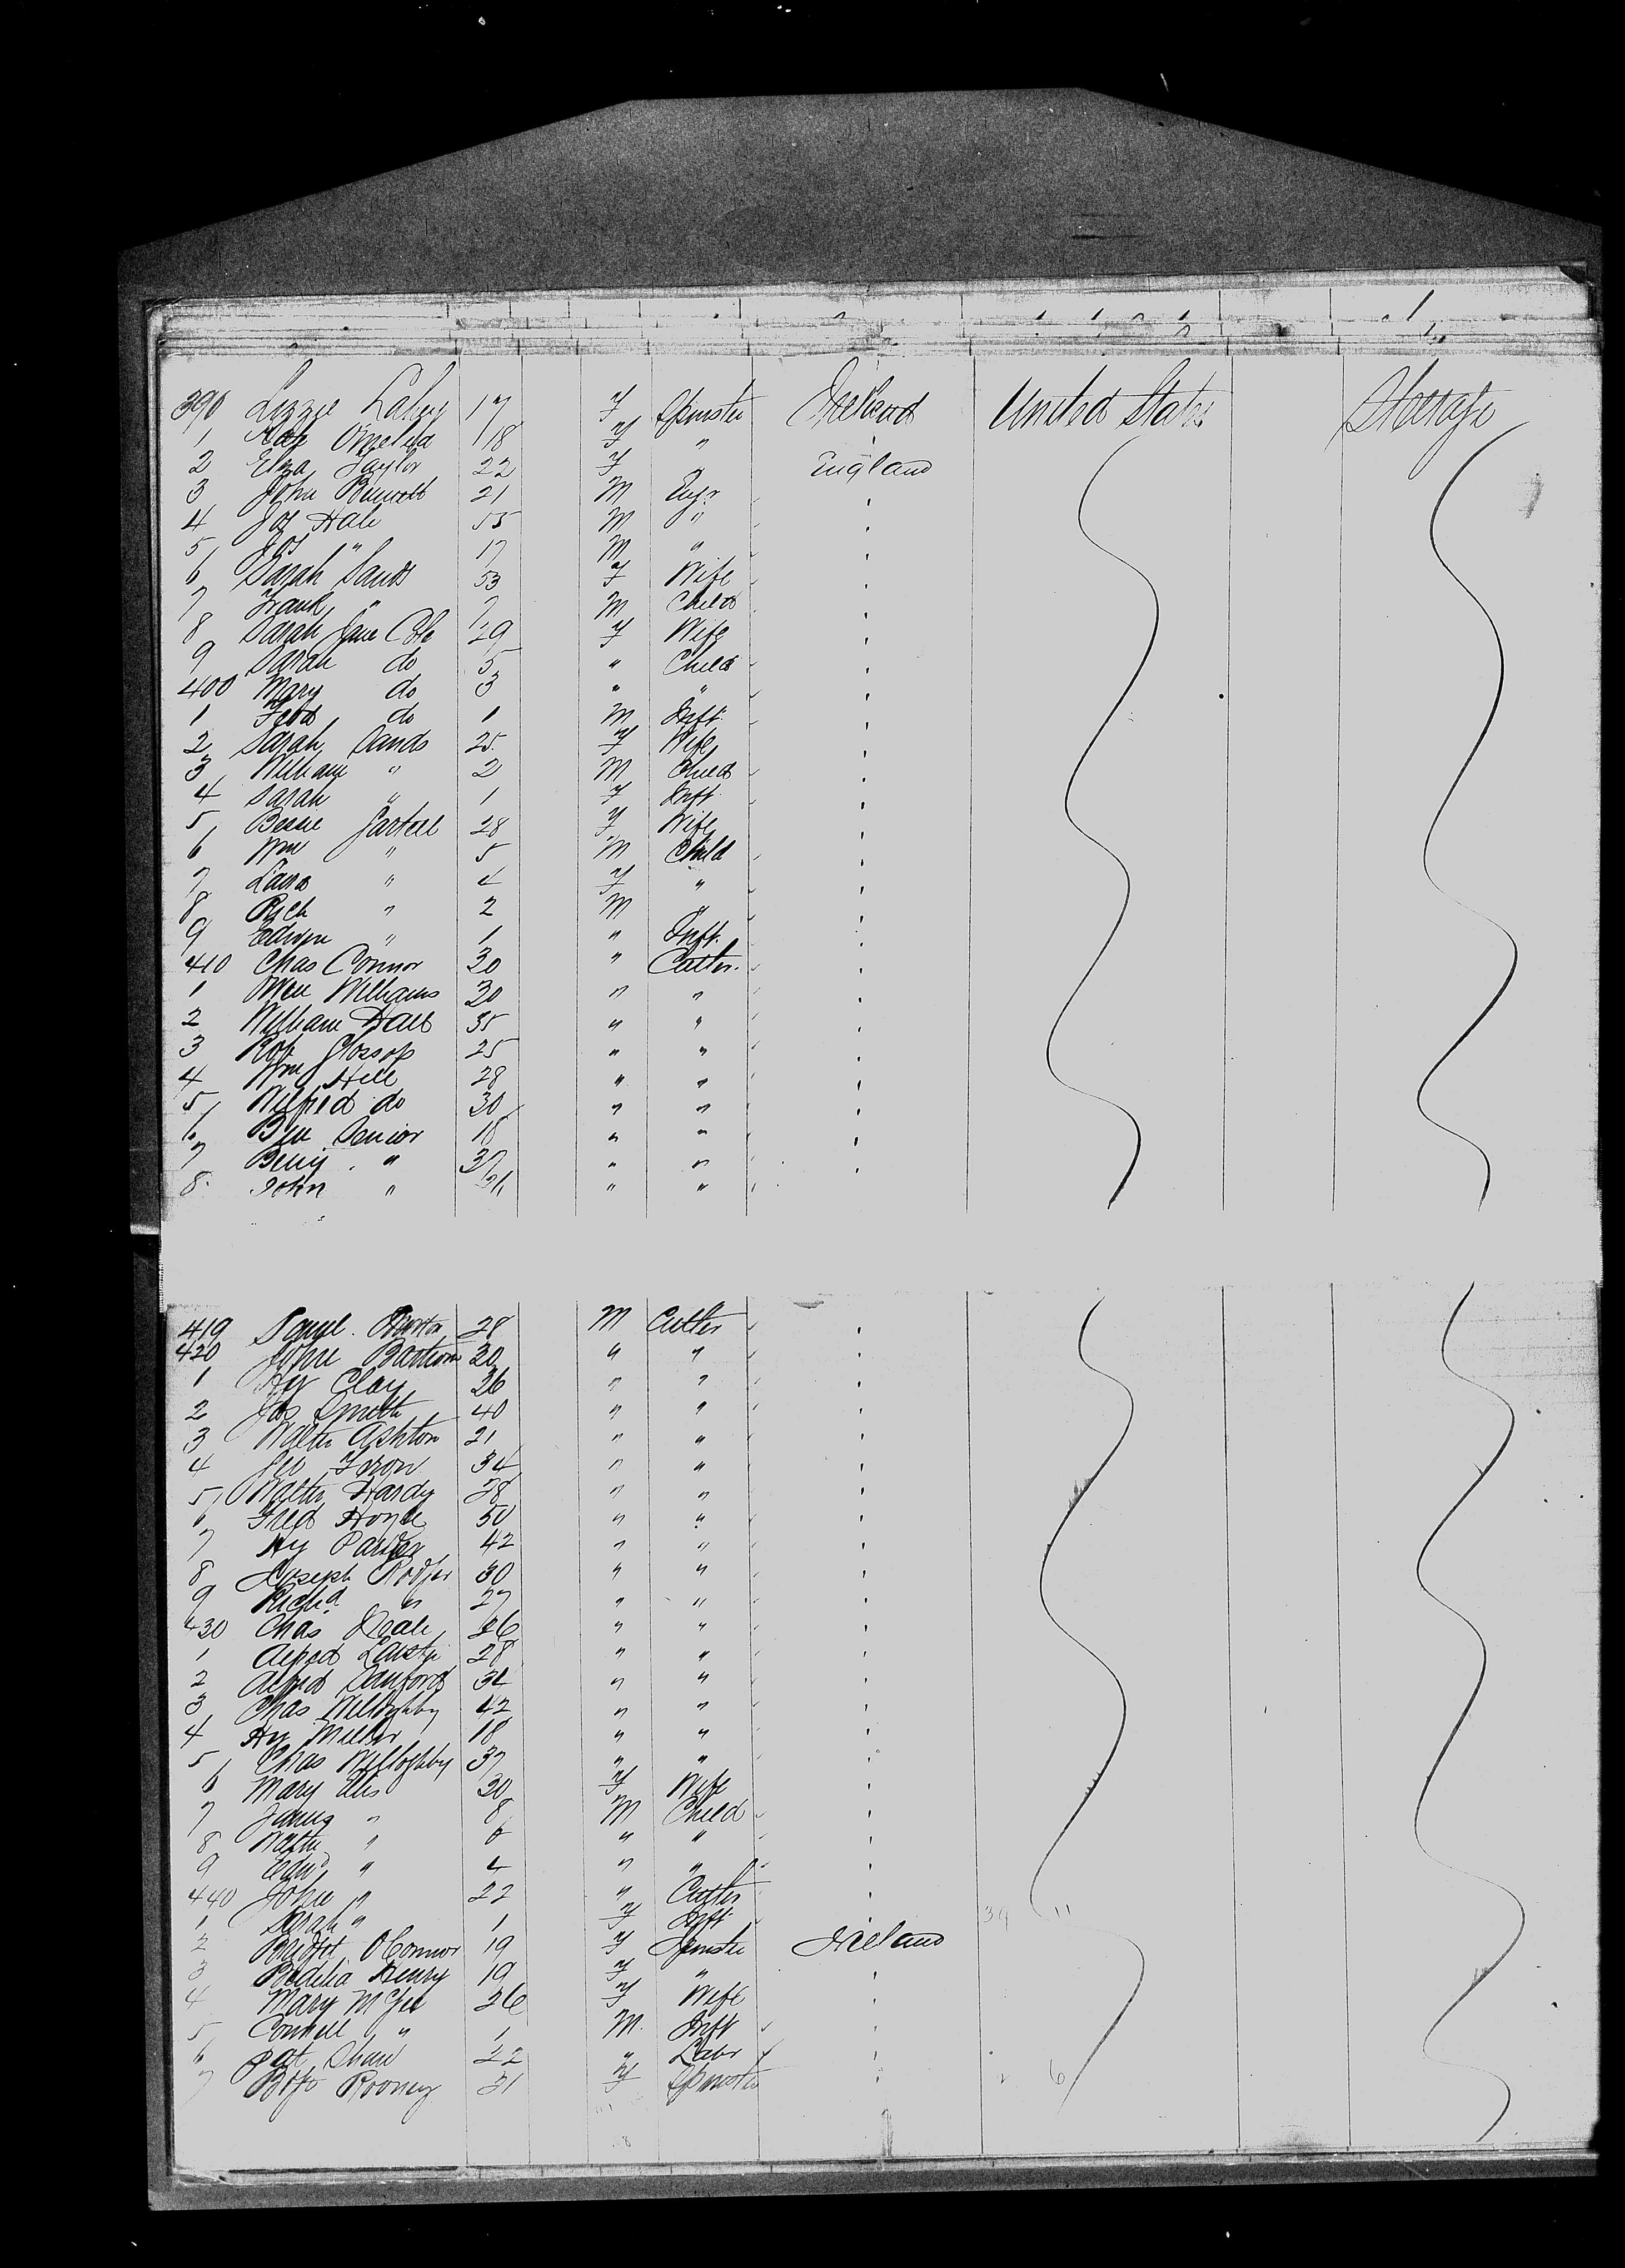 390 Lizzie Lahey 17 F Spinster Ireland United States Steerage
1 Kate 18 F "
2 Eliza Taylor 22 F " England
3 John 21 M Engr
4 Jos Hale 55 M "
5 Jos " 17 M "
6 Sarah Sands 53 F Wife
7 Frank " 7 M Child
8 Sarah Jane Cole 29 F Wife
9 Sarah do 5 " Child
400 Mary do 3 " "
1 Fred do 1 M Inft.
2 Sarah Sands 25 F Wife
3 William " 2 M Child
4 Sarah " 1 F Inft
5 Bessie 28 F Wife
6 Wm " 5 M Child
7 Laura " 4 F "
8 Rich " 2 M "
9 Edwyn " 1 " Inft.
410 Chas Connor 30 " Cutler.
1 Williams 30 " "
2 William Hall 35 " "
3 Rob Glossop 25 " "
4 Wm Hill 28 " "
5 Wilfred do 30 " "
6 Ben Senior 18 " "
7 Benj. " 37 " "
8 John " " "
419 Saml. 28 M Cutler
420 John 30 " "
1 Hy Clay 26 " "
2 Jos Smith 40 " "
3 Walter Ashton 21 " "
4 Geo 34 " "
5 Walter Hardy 28 " "
6 Fred Hoyle 50 " "
7 Hy Parker 42 " "
8 Joseph Rodger 30 " "
9 Richd " 27 " "
430 Chas 26 " "
1 Alfred 28 " "
2 Alfred Sanford 34 " "
3 Chas Willoghby 42 " "
4 Hy Miller 18 " "
5 Chas Willoghby 37 " "
6 Mary Ellis 30 F Wife
7 James " 8 M Child
8 Walter " 6 " "
9 Edwd " 4 " "
440 John " 22 " Cutler
1 Sarah " 1 F Inft 11
2 Bridget O'Connor 19 F Spinster Ireland
3 Bedelia Henry 19 F "
4 Mary McGee 26 F Wife
5 Connell " 1 M. Inft
6 Pat Shaw 22 " Labr
7 Rooney 21 F Spinster 6